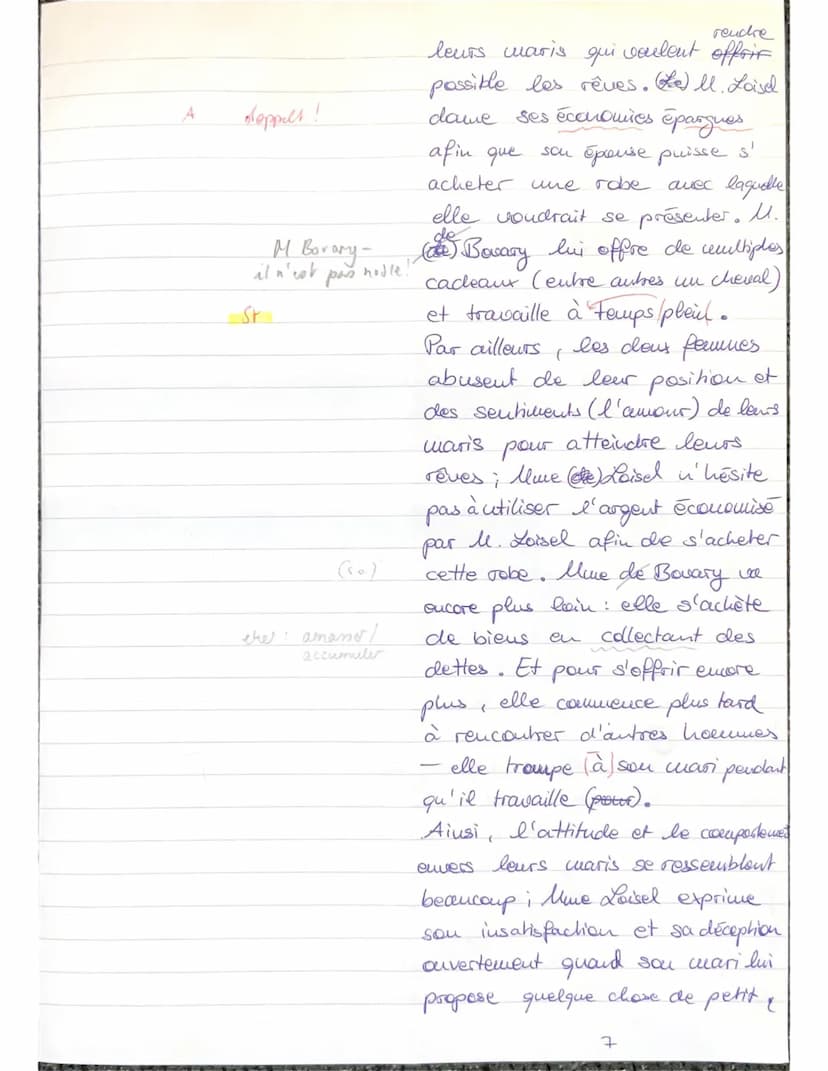 rendre
leurs maris qui veulent offrir
possible les rêves. (Le) M. Loisel
A doppelt !
donne ses économies épargnes
afin que son épouse puisse s'
acheter une robe avec laquelle
elle voudrait se présenter. M.
M Bovary -
il n'est pas noble !
(de) de Bovary lui offre de multiples
cadeaux (entre autres un cheval)
St
et travaille à temps plein.
Par ailleurs, les deux femmes
abusent de leur position et
des sentiments (l'amour) de leurs
maris pour atteindre leurs
rêves ; Mme (de) Loisel n'hésite
pas à utiliser l'argent économisé
par M. Loisel afin de s'acheter
(s.o.)
cette robe. Mme de Bovary va
encore plus loin : elle s'achète
eher : amasser /
accumuler
de biens en collectant des
dettes. Et pour s'offrir encore
plus, elle commence plus tard
à rencontrer d'autres hommes
– elle trompe (à) son mari pendant
qu'il travaille (pour).
Ainsi, l'attitude et le comportement
envers leurs maris se ressemblent
beaucoup ; Mme Loisel exprime
son insatisfaction et sa déception
ouvertement quand son mari lui
propose quelque chose de petit,
7